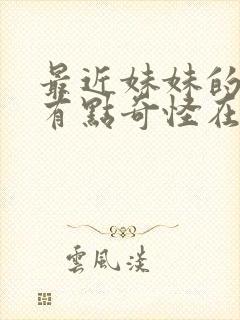 最近妹妹的
有點奇怪在
雲風淡